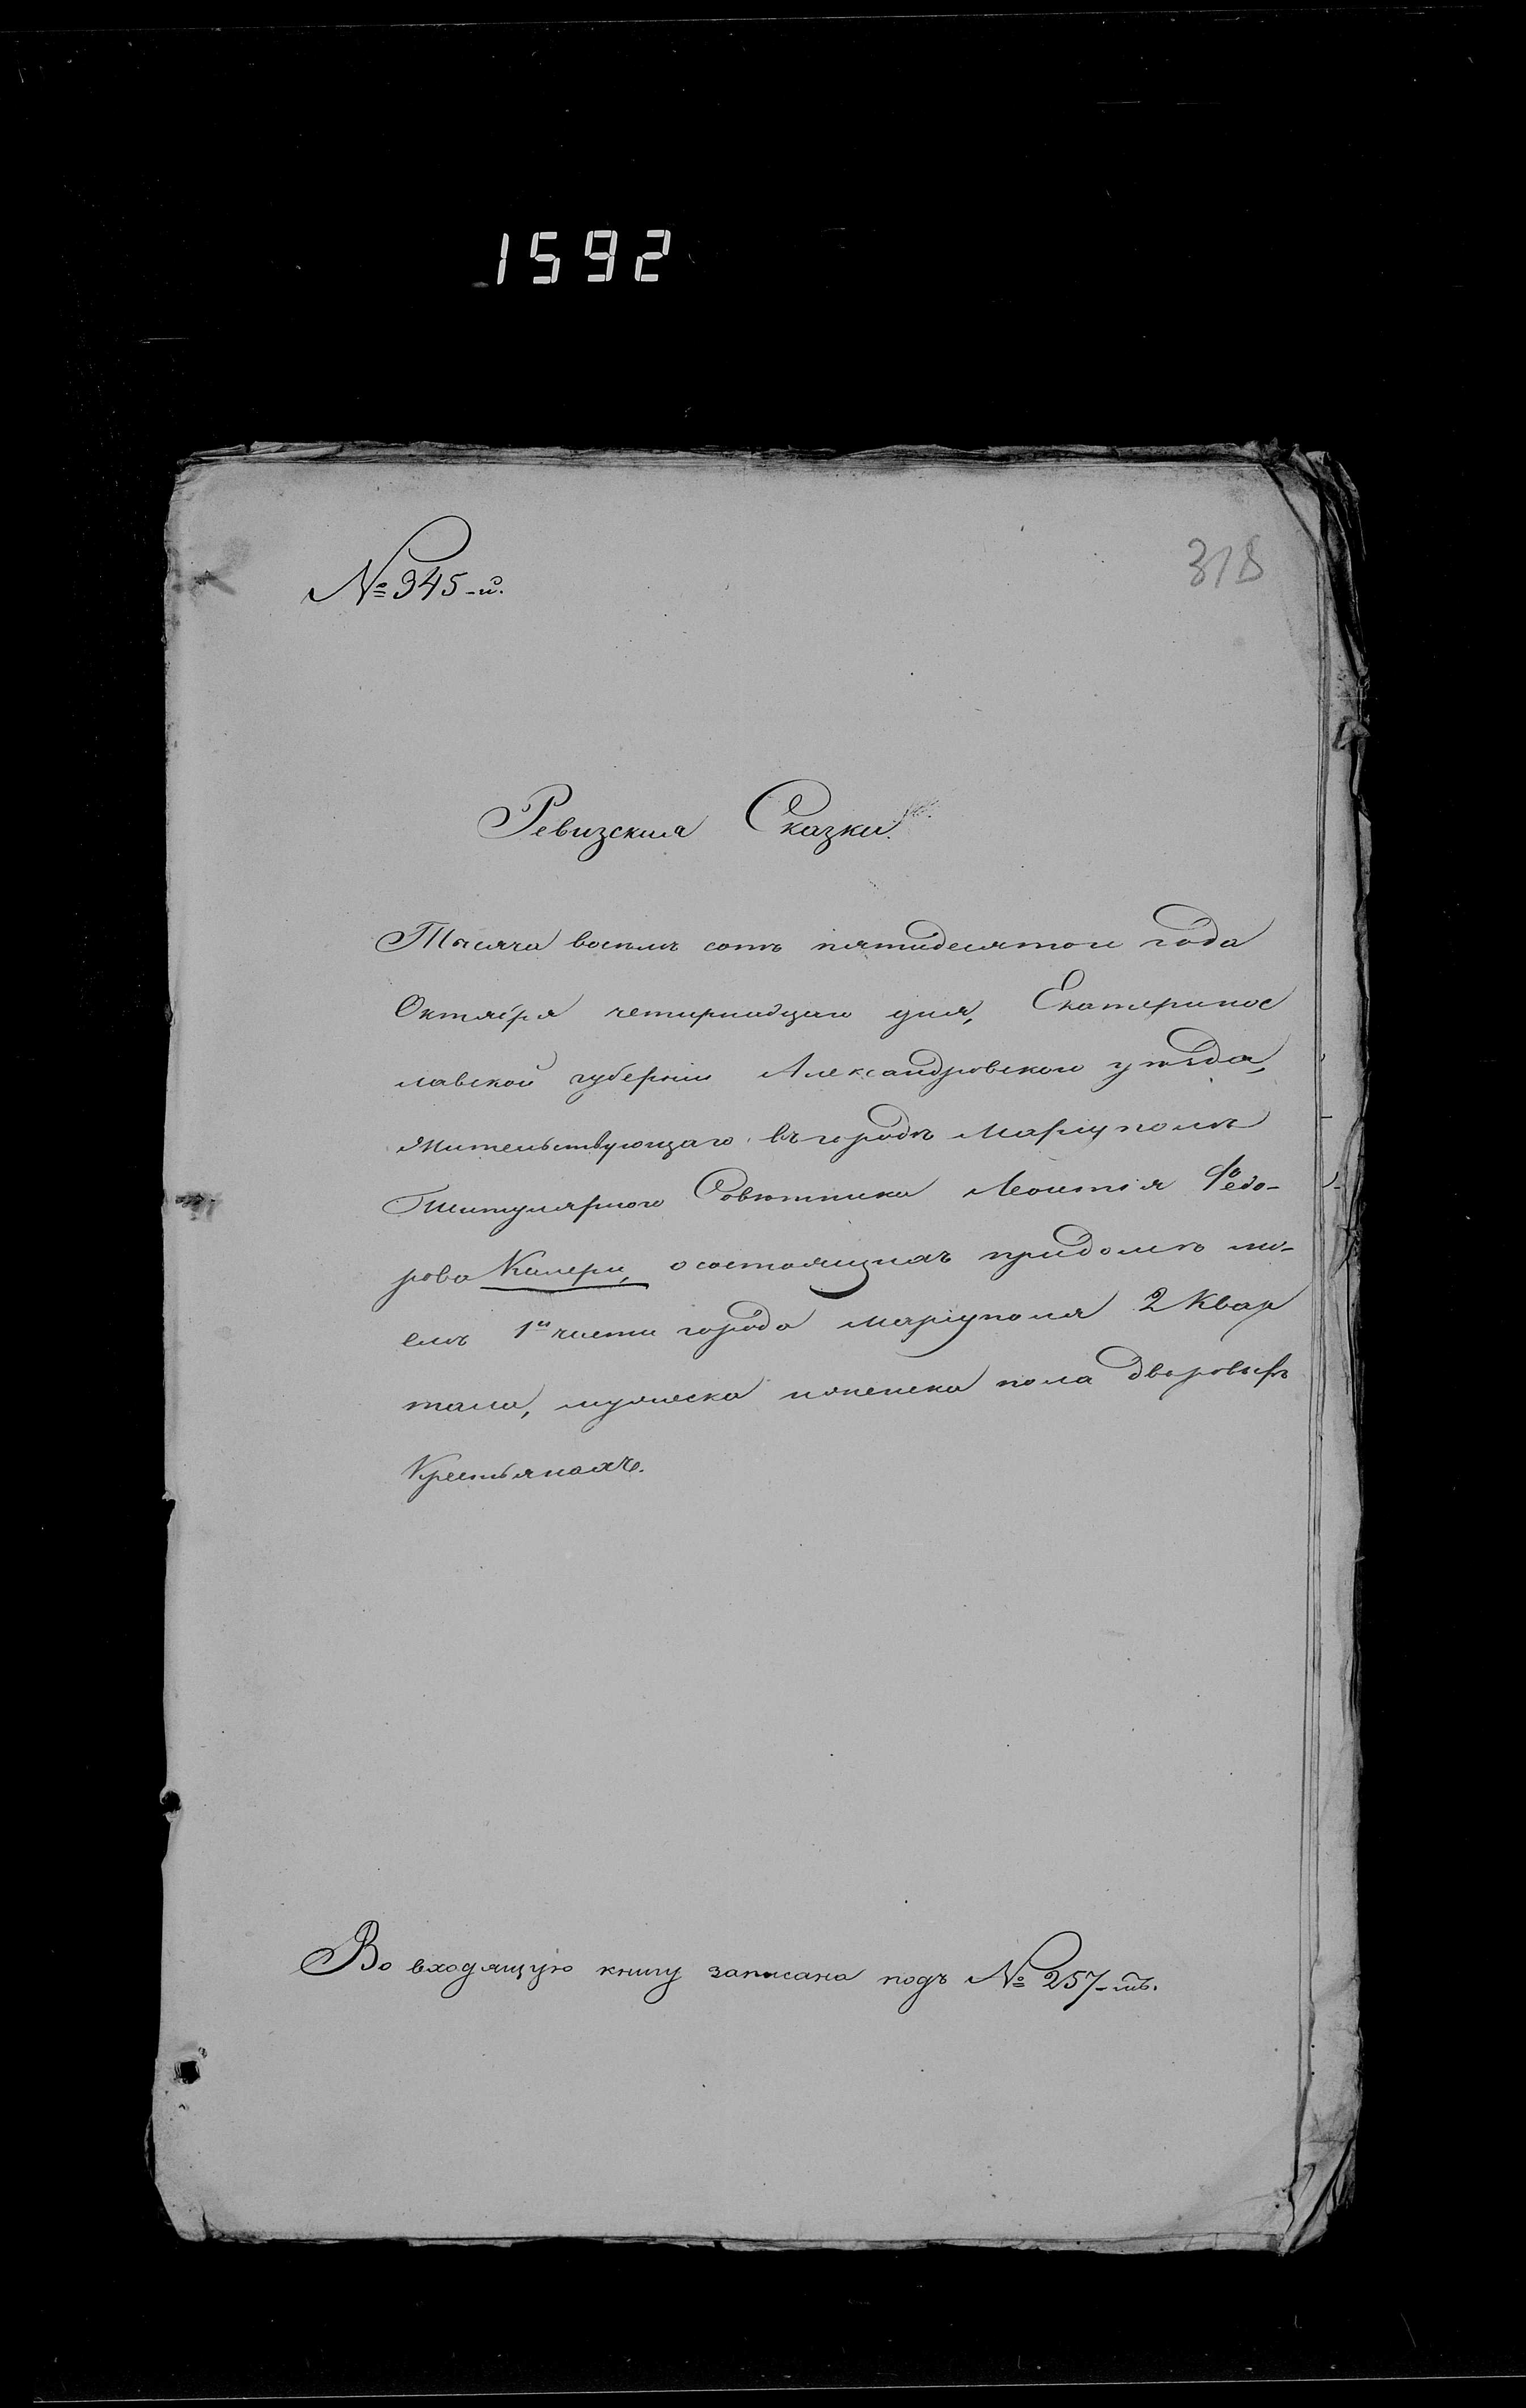 1592
№ 945-й.
318
Ревизския Сказки.
Тысяча восемь сотъ пятидесятого года
Октября четырнадцаго дня, Екатеринос
лавской губернии Александровского уѣзда,
жительствующаго въ городѣ Мариуполѣ
Титулярного Совѣтника Леонтия Федо-
рова Калери, о состоящихъ придомѣ мо-
емъ 1й части города Мариуполя 2 Квар
тала, мужеска иженска пола дворовыхъ
Крестьянахъ.
Во входящую книгу записана подъ № 257-мъ.